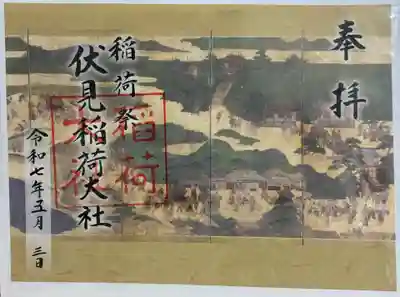 奉拝
稲荷祭
伏見稲荷大社
稲荷
令和七年五月三日